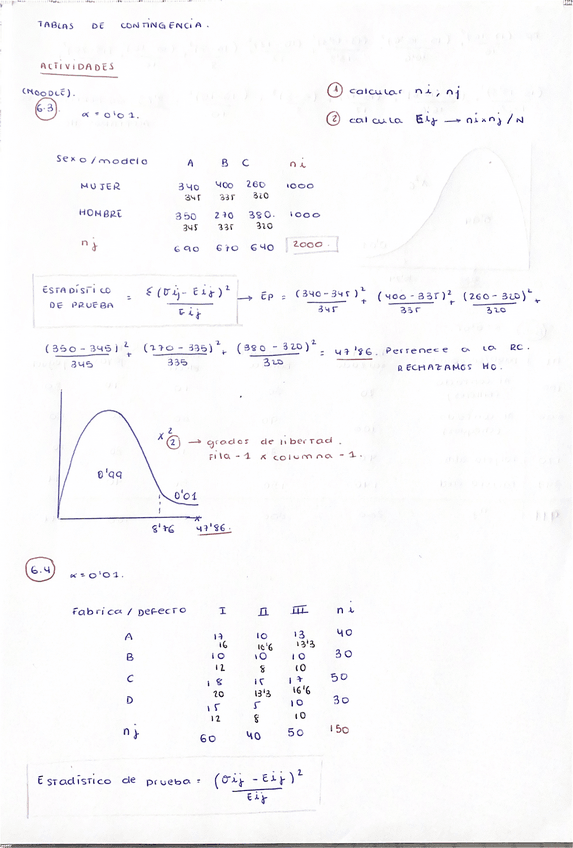 TABLAS DE CONTINGENCIA.
ACTIVIDADES
(MOODLE).
6.3 α = 0'01.
① calcular ni; nj
② calcula Eij → ni×nj/N
Sexo/modelo A B C ni
MUJER 340 400 260 1000
345 335 320
HOMBRE 350 270 380. 1000
345 335 320
nj 690 670 640 2000
ESTADÍSTICO DE PRUEBA = Σ(Oij - Eij)² / Eij → EP = (340-345)²/345 + (400-335)²/335 + (260-320)²/320 +
(350-345)²/345 + (270-335)²/335 + (380-320)²/320 = 47'86. Pertenece a la RC.
RECHAZAMOS HO.
x² ② → grados de libertad.
Fila-1 x columna-1.
0'99
0'01
8'76 47'86.
6.4 α = 0'01.
Fabrica / Defecto I II III ni
A 17 10 13 40
16 10'6 13'3
B 10 10 10 30
12 8 10
C 18 15 17 50
20 13'3 16'6
D 15 5 10 30
12 8 10
nj 60 40 50 150
Estadístico de prueba = (Oij - Eij)² / Eij